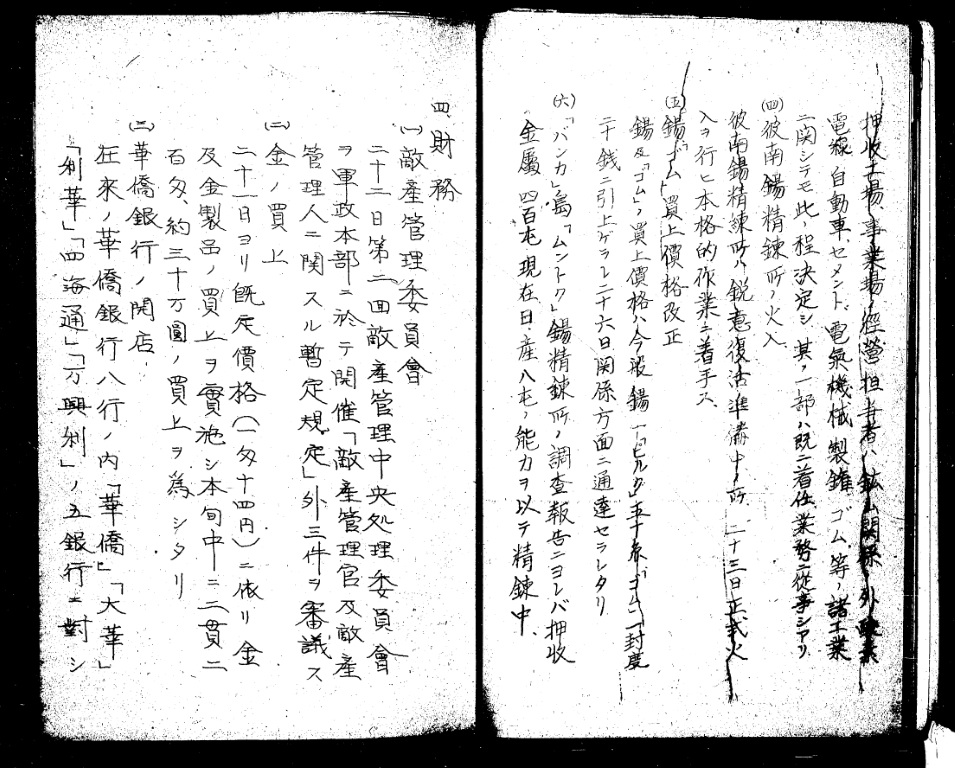 押收工場、事業場ノ經營担当者ハ鉱山関係ノ外酸素
電線、自動車、セメント、電氣機械製錐、ゴム、等ノ諸工業
ニ関シテモ此ノ程決定シ其ノ一部ハ既ニ着任業務ニ從事シアリ
(四)彼南錫精錬所ノ火入
彼南錫精錬所ハ鋭意復活準備中ノ所二十三日正式火
入ヲ行ヒ本格的作業ニ着手ス
(五)錫、ゴム、買上價格改正
錫及「ゴム」ノ買上價格ハ今般錫一「ピルク」五十弗「ゴム」一封度
二十銭ニ引上ゲラレ二十六日関係方面ニ通達セラレタリ
(六)「バンカ」島「ムントク」錫精錬所ノ調査報告ニヨレバ押收
金属四百屯現在日産八屯ノ能力ヲ以テ精錬中、
四、財務
(一)敵産管理委員會
二十二日第二回敵産管理中央処理委員會
ヲ軍政本部ニ於テ開催「敵産管理官及敵産
管理人ニ関スル暫定規定」外三件ヲ審議ス
(二)金ノ買上
二十一日ヨリ既定價格(一匁十四円)ニ依リ金
及金製品ノ買上ヲ實施シ本旬中ニ二貫二
百匁、約三十万圓ノ買上ヲ為シタリ
(三)華僑銀行ノ開店
在來ノ華僑銀行八行ノ内「華僑」「大華」
「利華」「四海通」「万興利」ノ五銀行ニ對シ